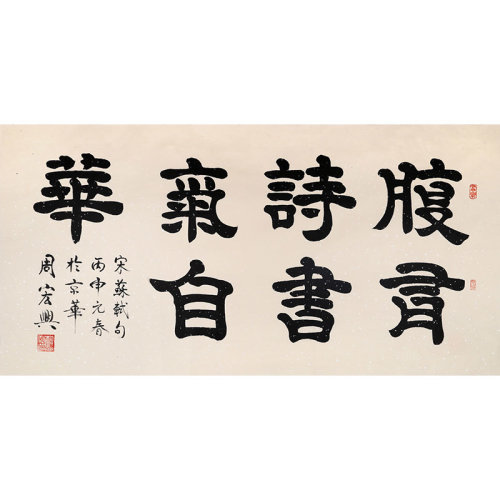 腹有
詩書
氣自
華
宋蘇軾句
丙申元春
於京華
周宏興